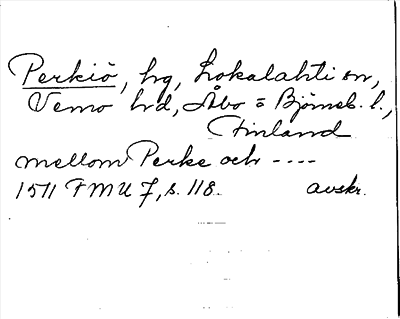 Perkiö, hg, Lokalahti sn,
Vemo hd, Åbo o Björneb. l.,
Finland
mellom Perke och ----
1511 FMU 7, s. 118. avskr.